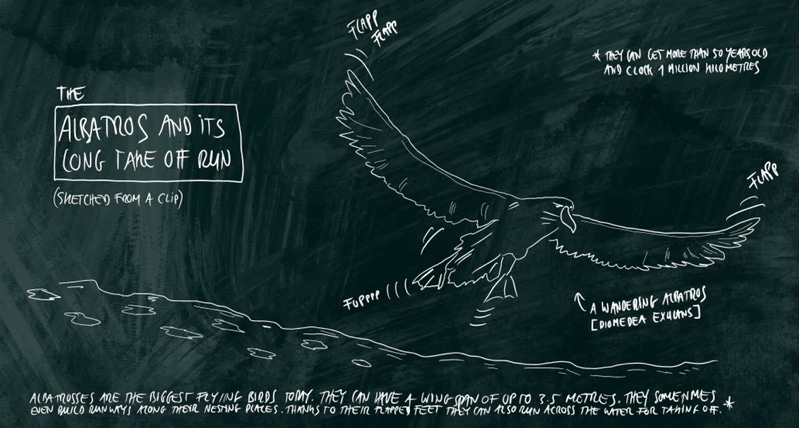 FLAPP
FLAPP
* THEY CAN GET MORE THAN 50 YEARS OLD
AND CLOCK 1 MILLION KILOMETRES
THE
ALBATROS AND ITS
LONG TAKE OFF RUN
(SKETCHED FROM A CLIP)
FLAPP
FUPPPP
A WANDERING ALBATROS
[DIOMEDEA EXULANS]
ALBATROSSES ARE THE BIGGEST FLYING BIRDS TODAY. THEY CAN HAVE A WINGSPAN OF UP TO 3.5 METRES. THEY SOMETIMES
EVEN BUILD RUNWAYS ALONG THEIR NESTING PLACES. THANKS TO THEIR FLAPPED FEET THEY CAN ALSO RUN ACROSS THE WATER FOR TAKING OFF. *